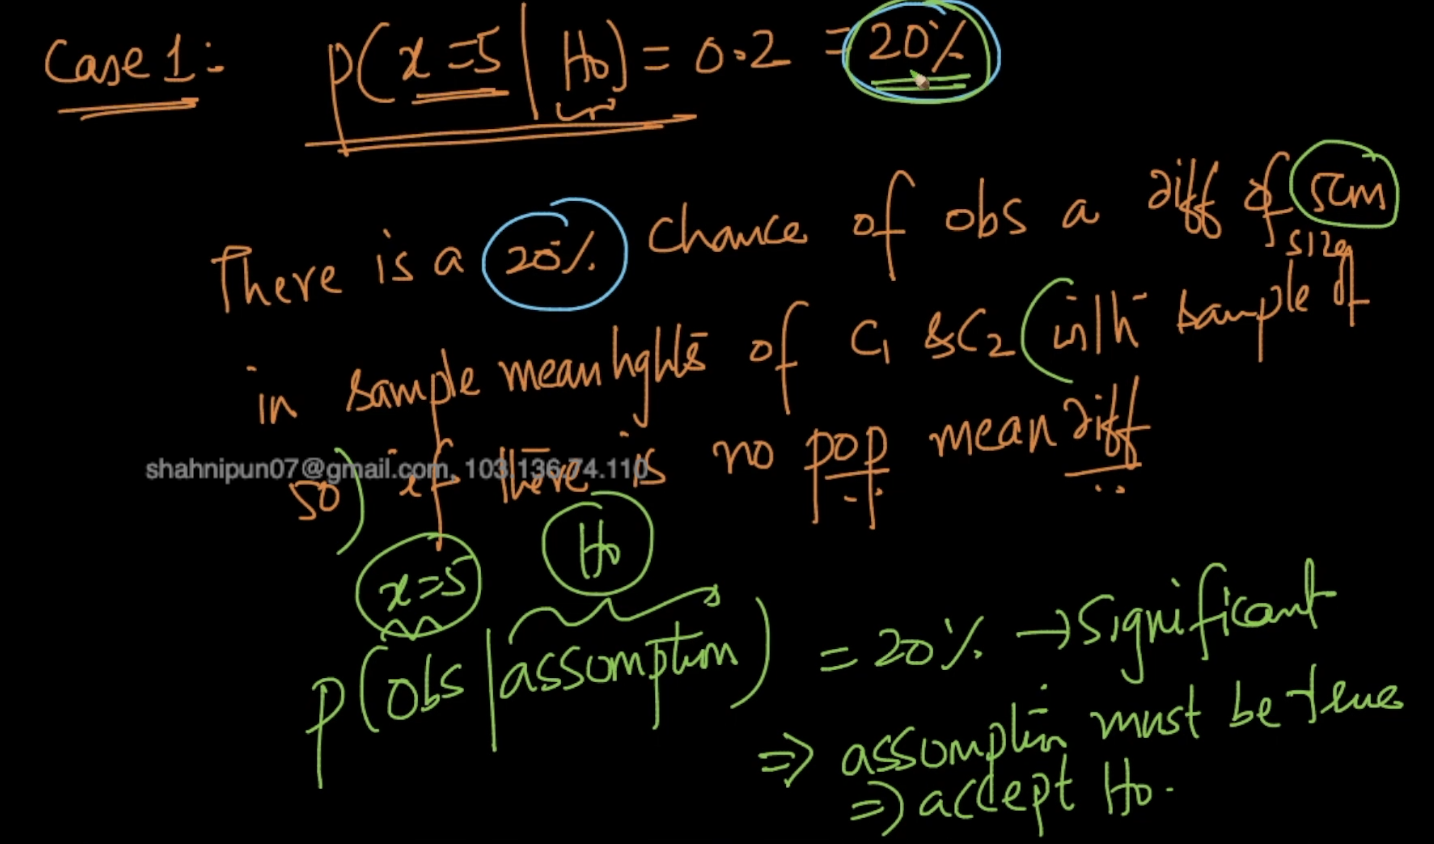 Case 1: P(x=5 | H0) = 0.2 = 20%
There is a 20% chance of obs a diff of 5cm
in sample mean hghts of C1 & C2 (with sample of size
50) if there is no pop mean diff
shahnipun07@gmail.com, 103.136.74.110
x=5 H0
P(obs | assumption) = 20% → Significant
⇒ assumption must be true
⇒ accept H0.